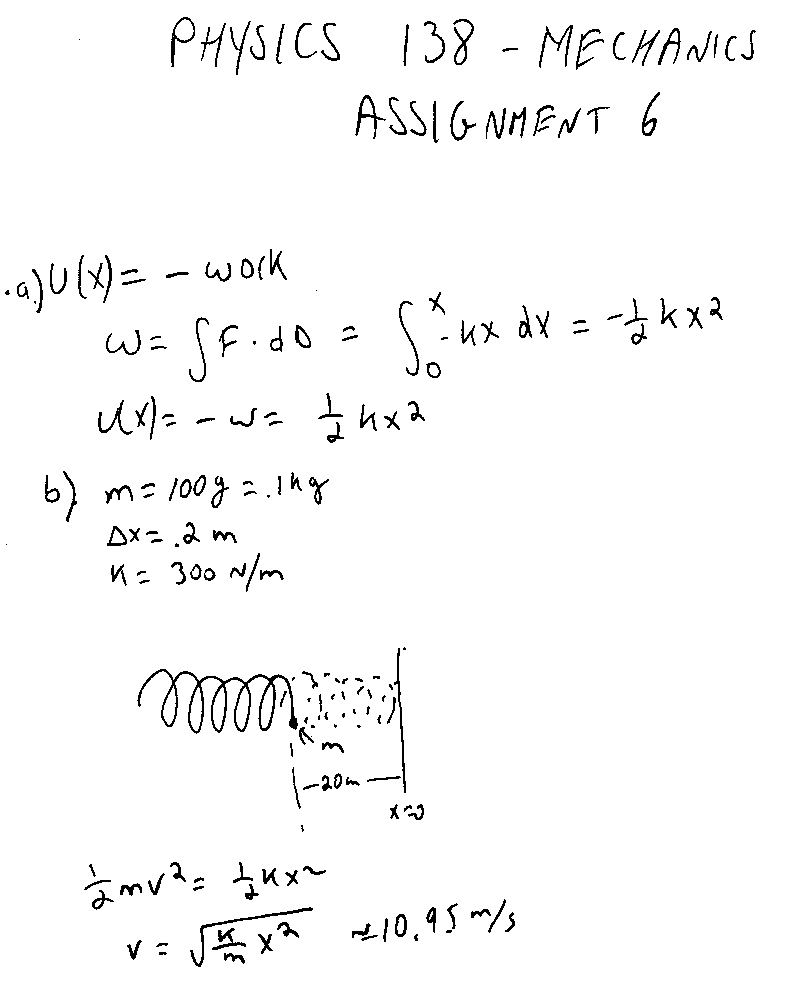 PHYSICS 138 - MECHANICS
ASSIGNMENT 6
.a) U(x) = - work
W = ∫F·dD = ∫₀ˣ -kx dx = -½kx²
U(x) = -W = ½kx²
b) m = 100g = .1kg
Δx = .2 m
K = 300 N/m
m
-20m-
x=0
½mv² = ½kx²
v = √(k/m x²) ≈ 10.95 m/s